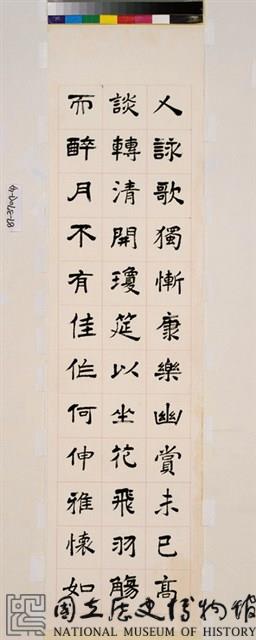 人詠歌獨慚康樂幽賞未已高
談轉清開瓊筵以坐花飛羽觴
而醉月不有佳作何伸雅懷如
國立歷史博物館
NATIONAL MUSEUM OF HISTORY